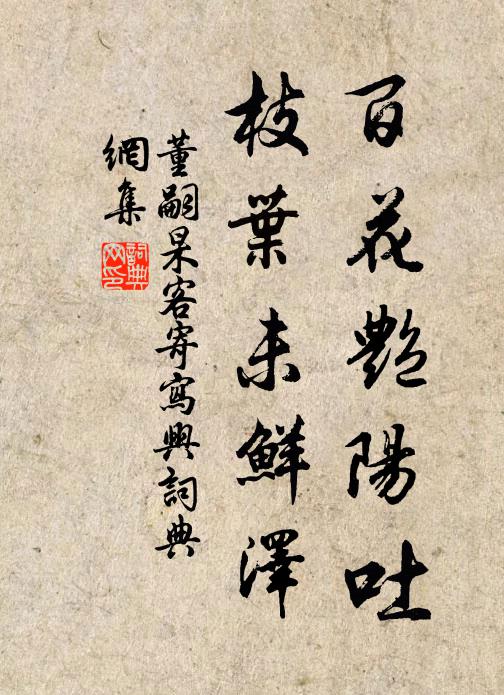 百花艷陽吐
枝葉未鮮澤
董嗣杲客寄寫興詞典
網集
詞典
网印